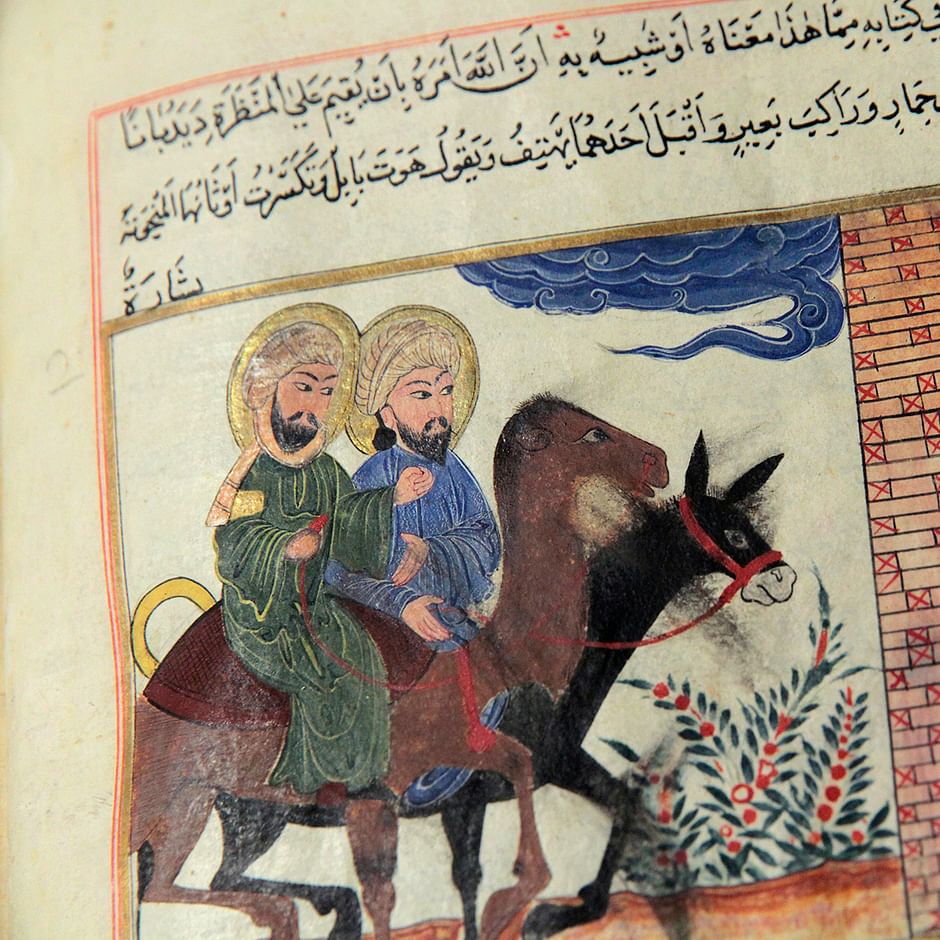 في كِتَابِهِ مِمَّا هٰذَا مَعْنَاهُ اَوْ شَبِيهٌ بِهِ اَنَّ اللّٰهَ اَمَرَهُ بِاَنْ يُقِيمَ عَلَى الْمَنْظَرَةِ دَيْدُبَانًا
حِمَارٍ وَرَاكِبَ بَعِيرٍ وَاَقْبَلَ اَحَدَهُمَا يَهْتِفُ وَيَقُولُ هَوَتَ بَابِلُ وَتَكَسَّرَتْ اَوْثَانُهَا الْمَنْحُوتَةُ
بشَارَةٌ